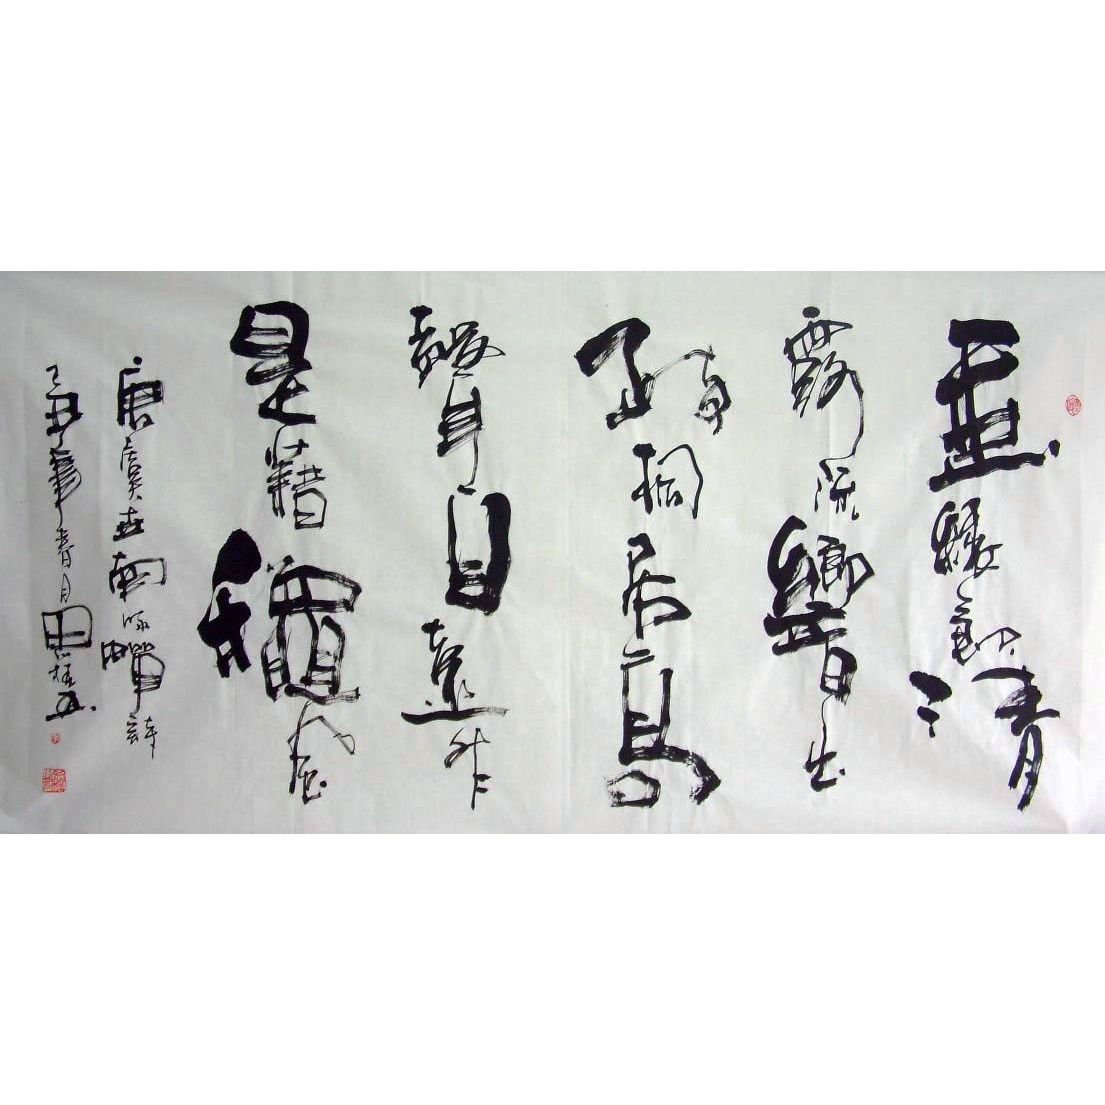 垂緌飲清
露流響出
疏桐居高
聲自遠非
是藉穐風
唐虞世南咏蟬詩
春月